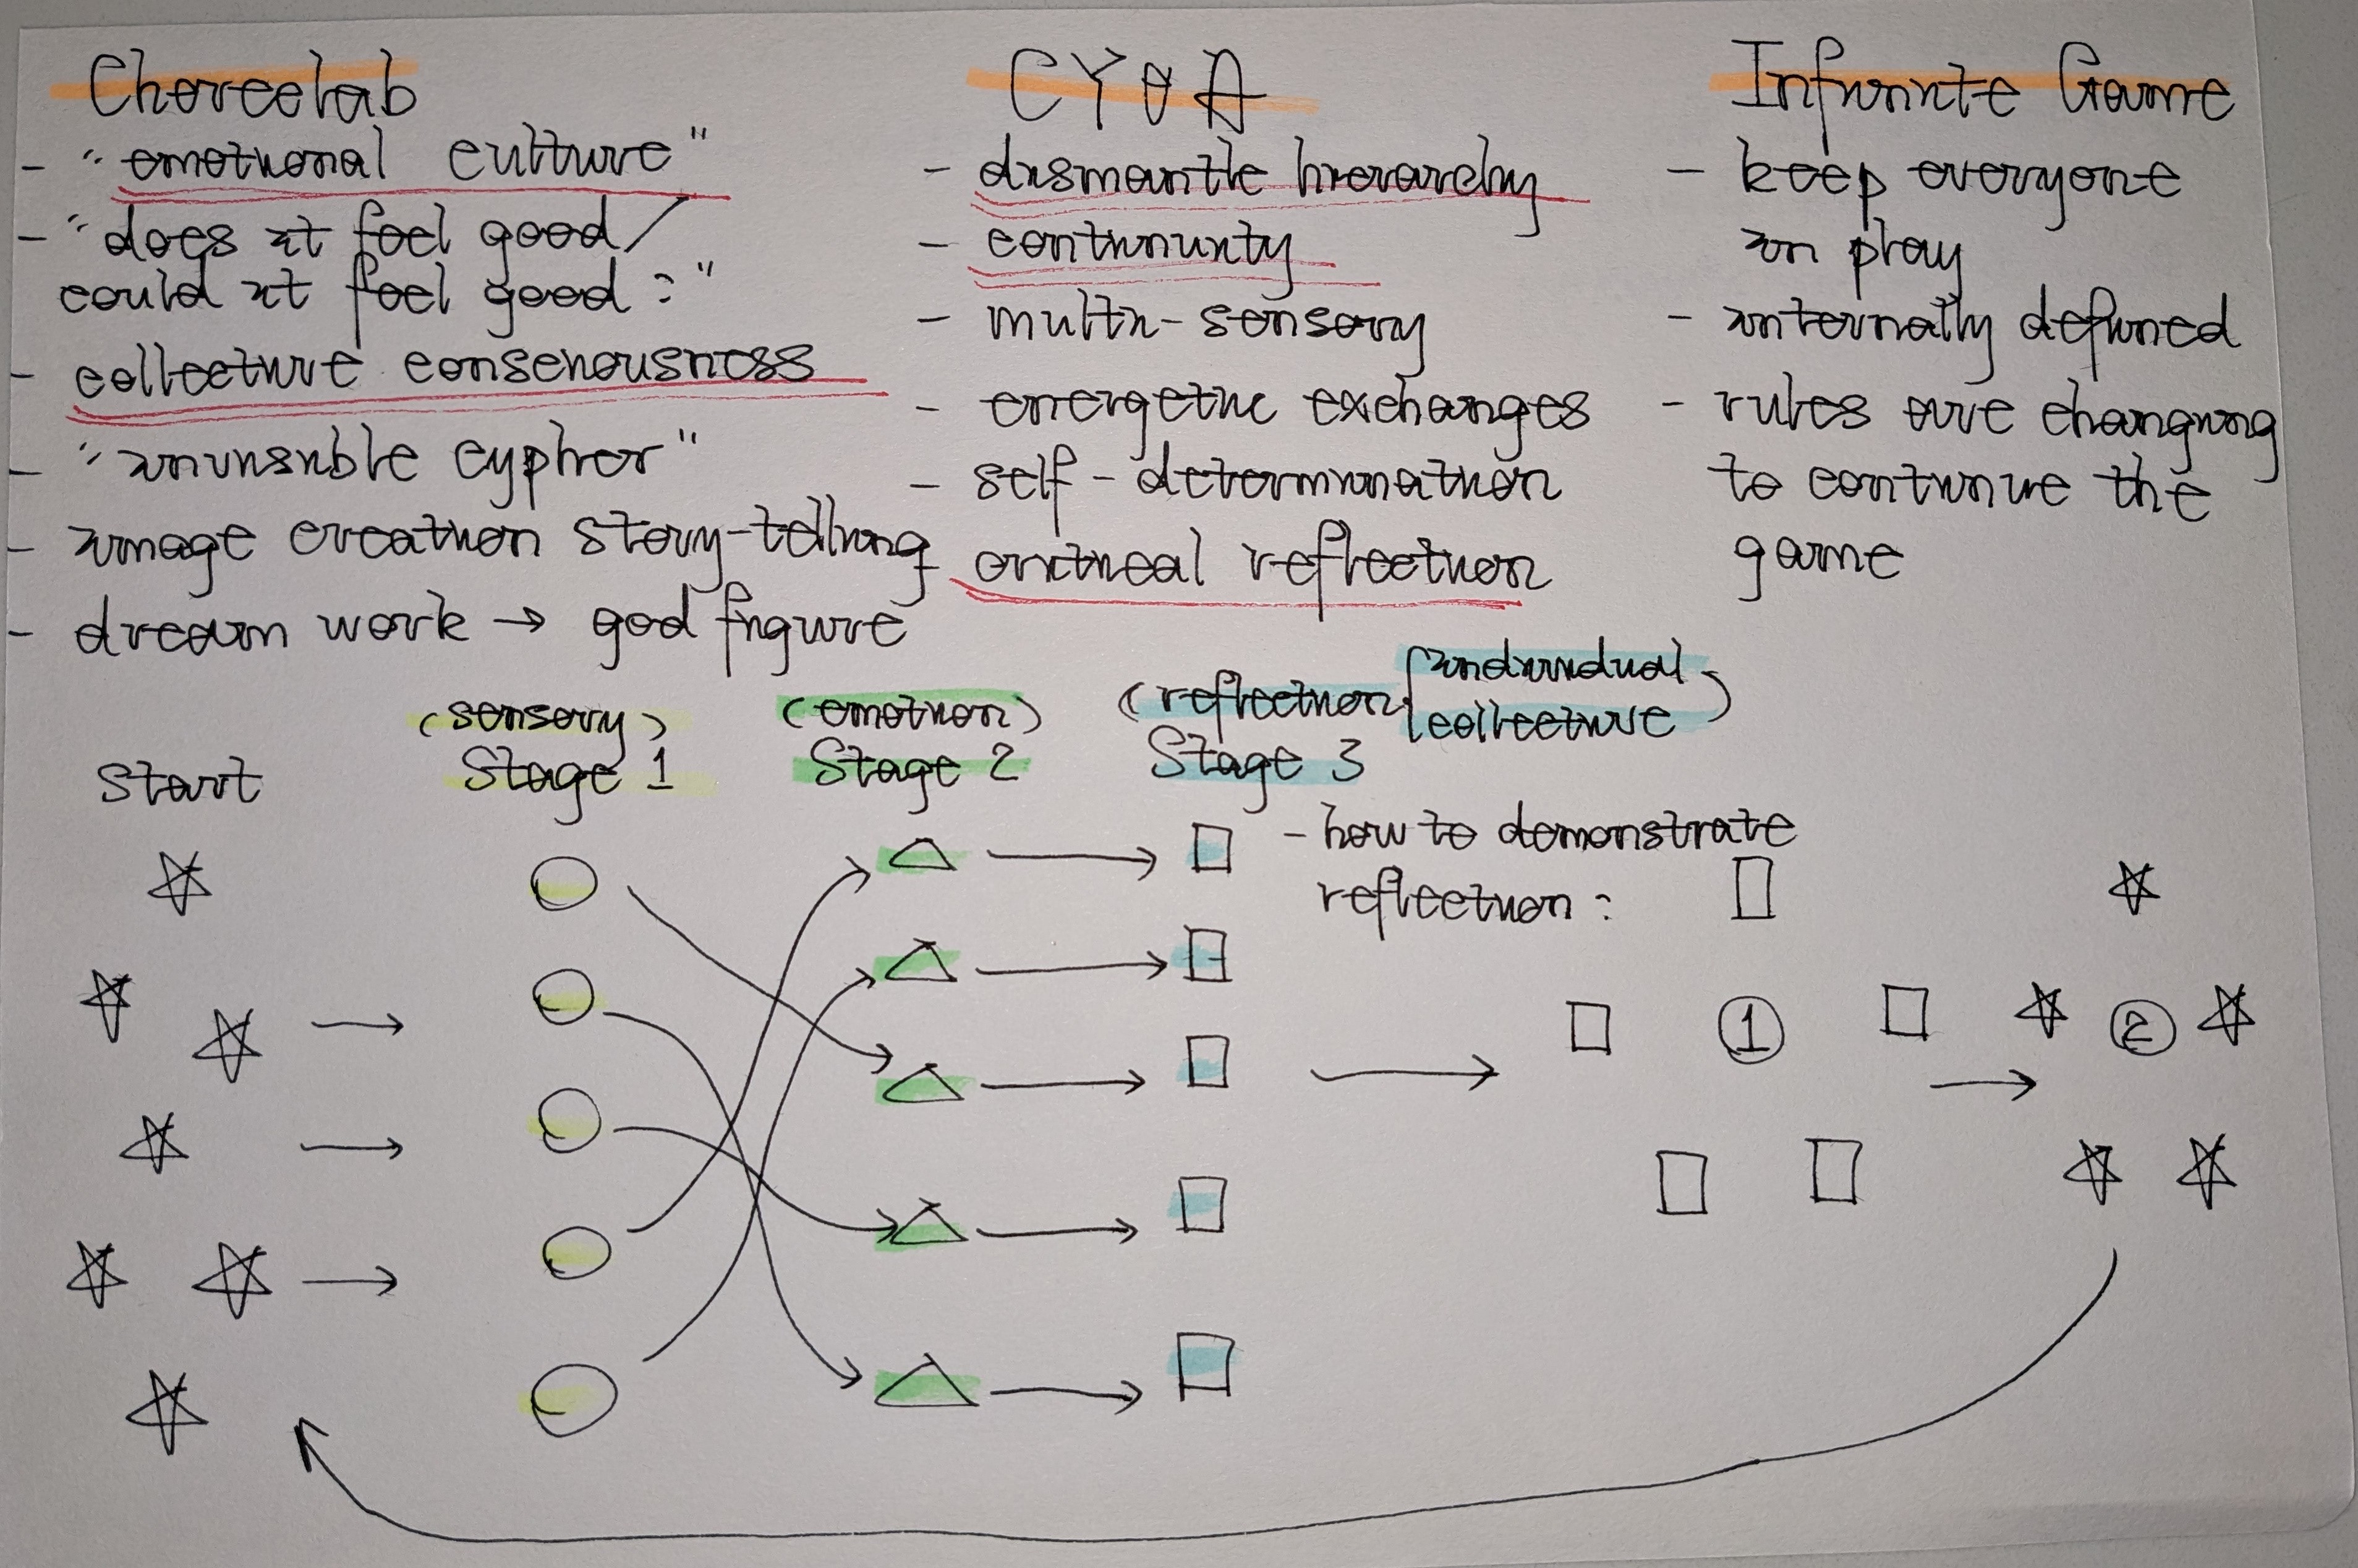 Choreolab
- "emotional culture"
- "does it feel good/
could it feel good?"
- collective consciousness
- "invisible cypher"
- image creation story-telling
- dream work → god figure
CYOA
- dismantle hierarchy
- continuity
- multi-sensory
- energetic exchanges
- self-determination
critical reflection
Infinite Game
- keep everyone
in play
- internally defined
- rules are changing
to continue the
game
Start
(sensory)
Stage 1
(emotion)
Stage 2
(reflection { individual
collective )
Stage 3
- how to demonstrate
reflection?
1
2